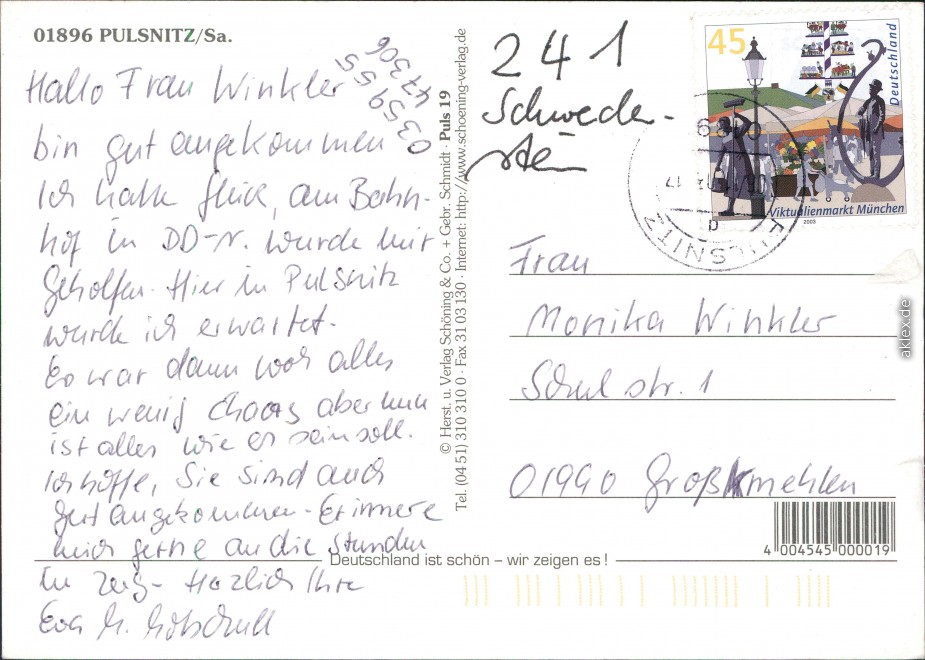 01896 PULSNITZ/Sa.
Hallo Frau Winkler
bin gut angekommen
Ich hatte Glück, am Bahn-
hof in DD-N. wurde mir
geholfen. Hier in Pulsnitz
wurde ich erwartet.
Es war dann noch alles
ein wenig chaos aber nun
ist alles wie es sein soll.
Ich hoffe, Sie sind auch
gut angekommen. Erinnere
mich gerne an die Stunden
im Zug - Herzlich Ihre
Eva M.
035955
47306
© Herst. u. Verlag Schöning & Co. + Gebr. Schmidt · Puls 19
Tel. (04 51) 310 310 0 · Fax 31 03 130 · Internet: http://www.schoening-verlag.de
241
Schwede-
stein
45
Deutschland
Viktualienmarkt München
2003
PULSNITZ
Frau
Monika Winkler
Schulstr. 1
01990 Großkmehlen
4 004545 000019
Deutschland ist schön – wir zeigen es!
aklex.de